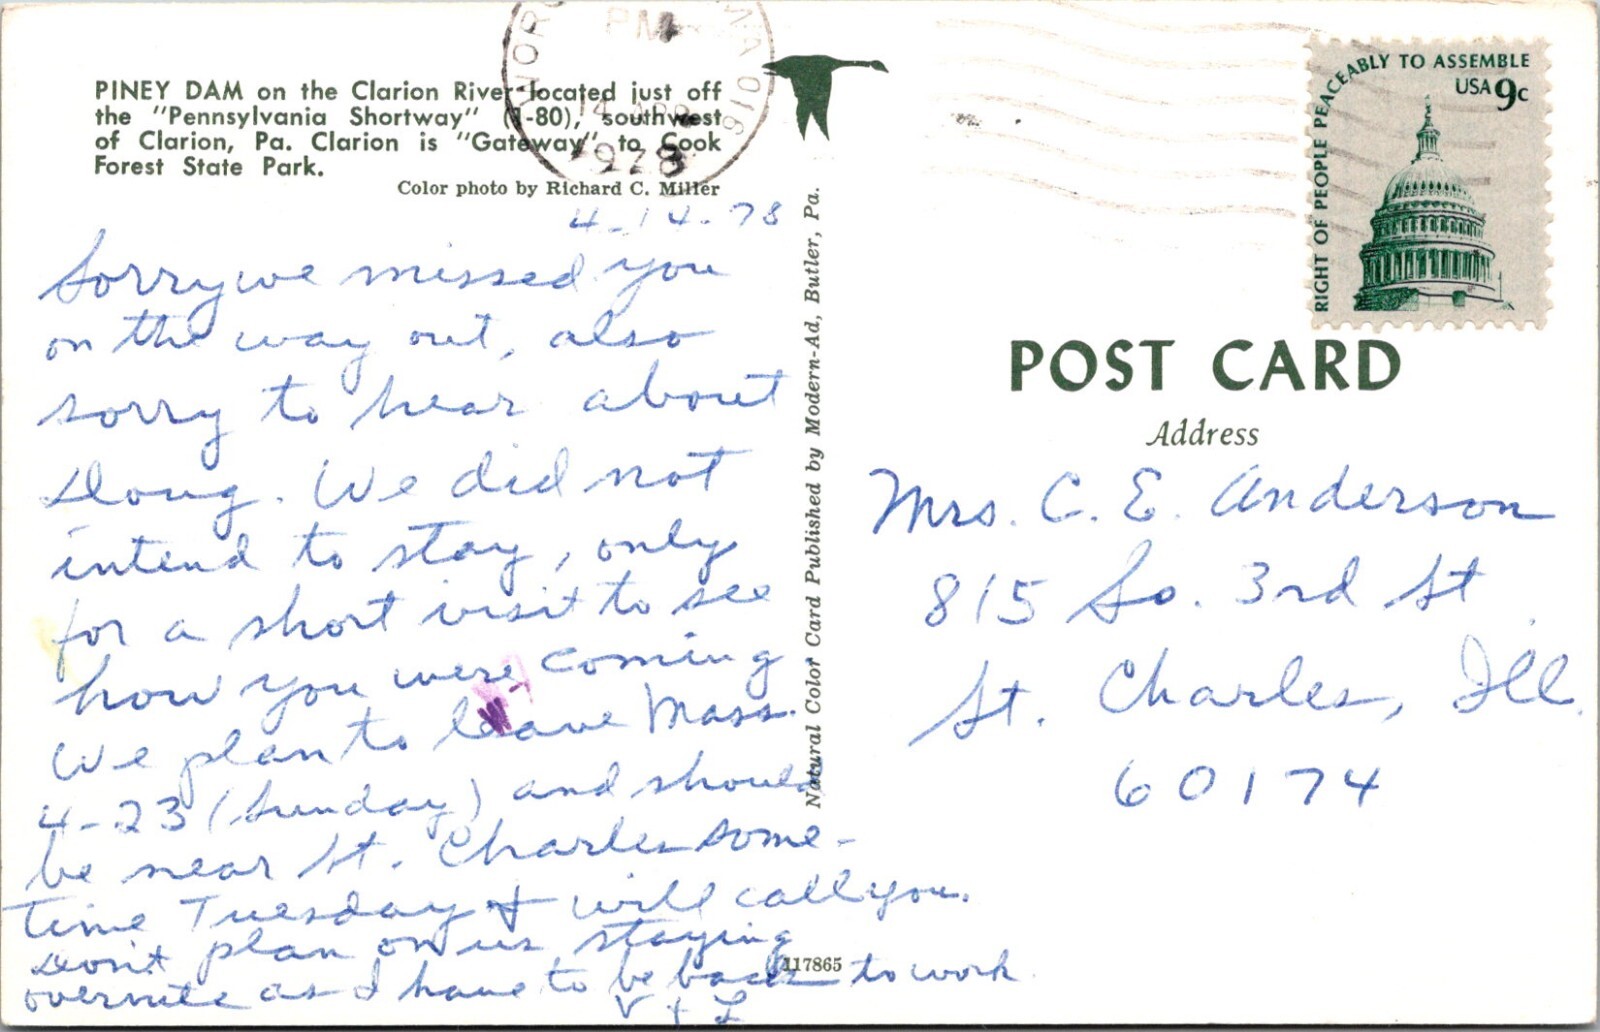 PINEY DAM on the Clarion River located just off
the "Pennsylvania Shortway" (I-80), southwest
of Clarion, Pa. Clarion is "Gateway" to Cook
Forest State Park.
Color photo by Richard C. Miller
PM
MA 016
14 APR
1978
4-14-78
Sorry we missed you
on the way out, also
sorry to hear about
Doug. We did not
intend to stay, only
for a short visit to see
how you were coming
We plan to leave Mass.
4-23 (Sunday) and should
be near St. Charles some-
time Tuesday & will call you.
Don't plan on us staying
overnite as I have to be back to work
V & L
117865
Natural Color Card Published by Modern-Ad, Butler, Pa.
RIGHT OF PEOPLE PEACEABLY TO ASSEMBLE
USA 9c
POST CARD
Address
Mrs. C. E. Anderson
815 So. 3rd St
St. Charles, Ill.
60174